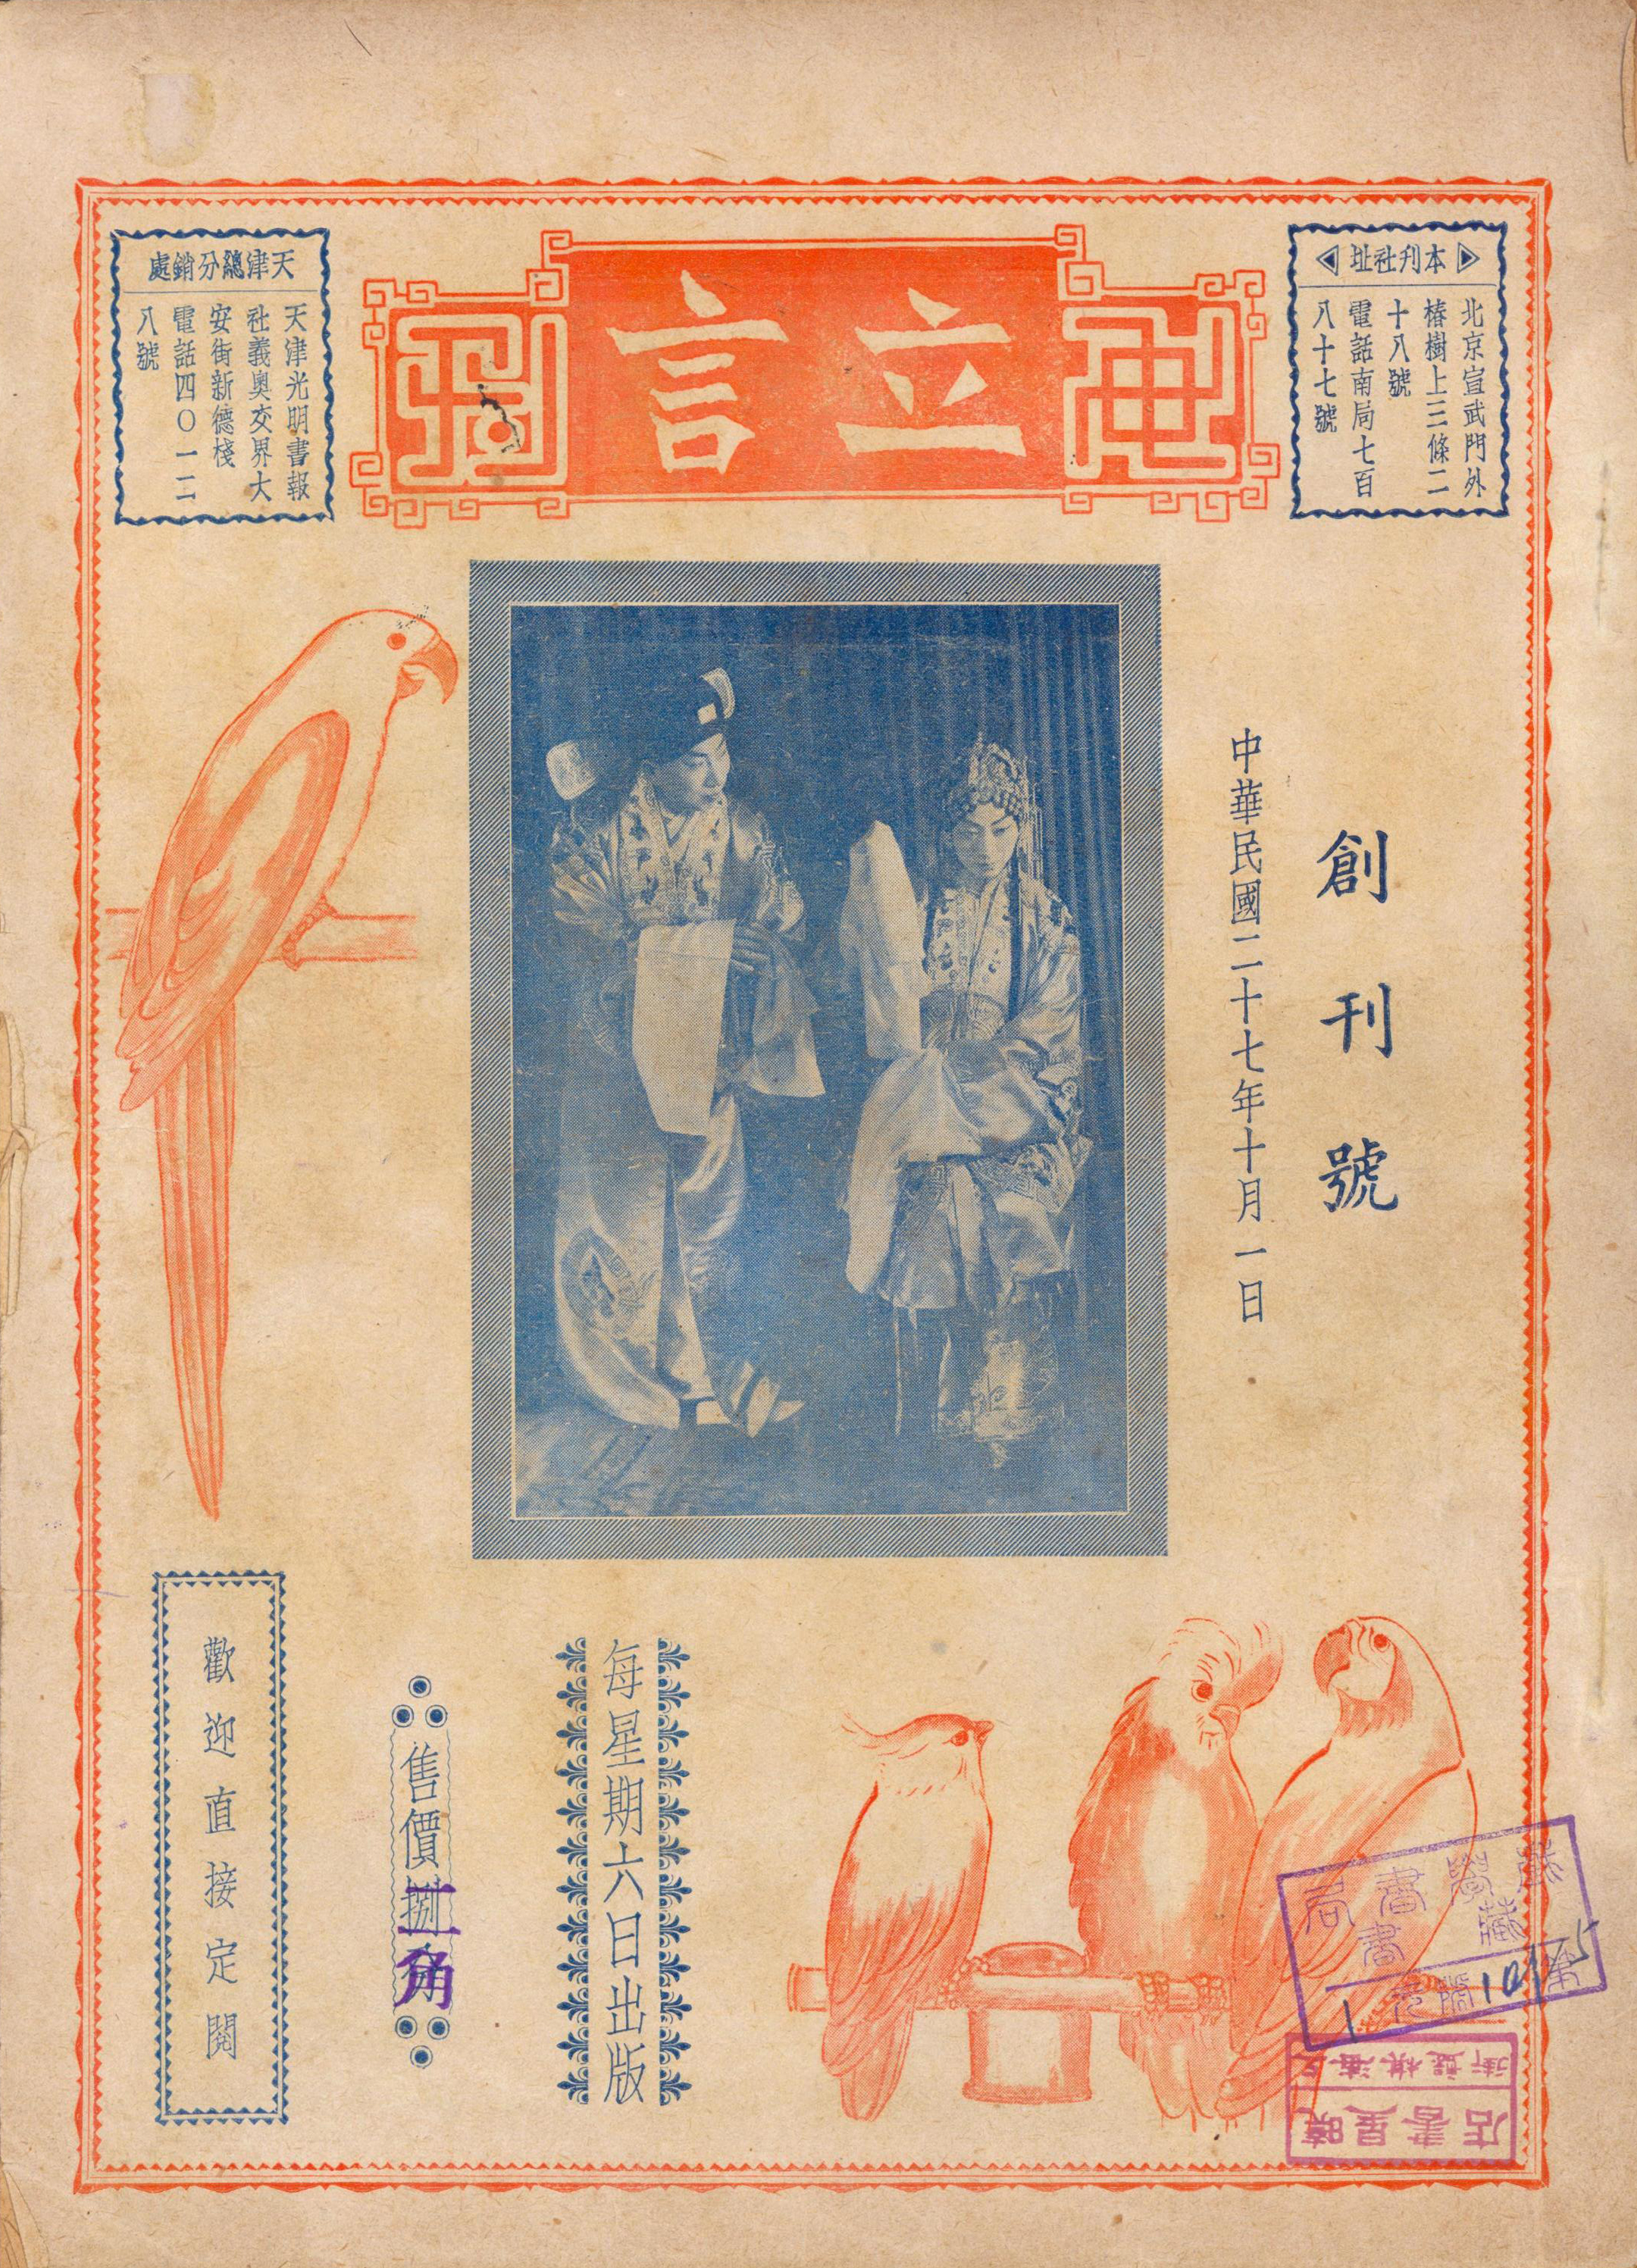 本刊社址
北京宣武門外
椿樹上三條二
十八號
電話南局七百
八十七號
立言
天津總分銷處
天津光明書報
社義奧交界大
安街新德棧
電話四〇一二
八號
創刊號
中華民國二十七年十月一日
每星期六日出版
售價捌
二角
歡迎直接定閱
曉星書店